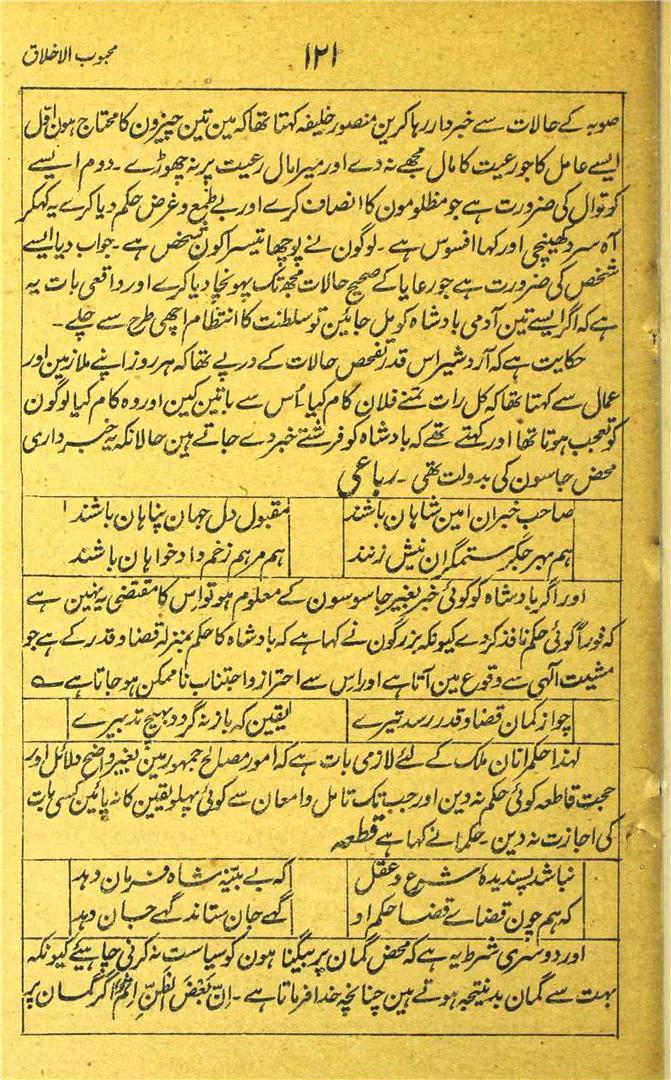 محبوب الاخلاق
۱۲۱
صوبہ کے حالات سے خبردار رہا کرین منصور خلیفہ کہتا تھا کہ مین تین چیزون کا محتاج ہون اول
ایسے عامل کا جو رعیت کا مال مجھے نہ دے اور میرا مال رعیت پر نہ چھوڑے ۔ دوم ایسے
کوتوال کی ضرورت ہے جو مظلومون کا انصاف کرے اور بے طمع و غرض حکم دیا کرے یہ کہکر
آہ سرد کھینچی اور کہا افسوس ہے ۔ لوگون نے پوچھا تیسرا کون شخص ہے ۔ جواب دیا ایسے
شخص کی ضرورت ہے جو رعایا کے صحیح حالات مجھ تک پہونچا دیا کرے اور واقعی بات یہ
ہے کہ اگر ایسے تین آدمی بادشاہ کو مل جائین تو سلطنت کا انتظام اچھی طرح سے چلے ۔
حکایت ہے کہ آردشیر اس قدر تفحص حالات کے درپے تھا کہ ہر روز اپنے ملازمین اور
عمال سے کہتا تھا کہ کل رات تمنے فلان کام کیا ۔ اُس سے باتین کین اور وہ کام کیا لوگون
کو تعجب ہوتا تھا اور کہتے تھے کہ بادشاہ کو فرشتے خبر دے جاتے ہین حالانکہ یہ خبرداری
محض جاسون کی بدولت تھی ۔ رباعی
صاحب خبران امین شاہان باشند مقبول دل جہان پناہان باشند
ہم بہر جگر ستمگران نیش زنند ہم مرہم زخم دادخواہان باشند
اور اگر بادشاہ کو کوئی خبر بغیر جاسوسون کے معلوم ہو تو اس کا مقتضی یہ نہین ہے
کہ فوراً کوئی حکم نافذ کردے کیونکہ بزرگون نے کہا ہے کہ بادشاہ کا حکم بمنزلہ قضا و قدر کے ہے جو
مشیت الٰہی سے وقوع مین آتا ہے اور اس سے احتراز و اجتناب ناممکن ہو جاتا ہے ؎
چو از کمان قضا و قدر رسد تیرے یقین کہ باز نہ گردد بہیچ تدبیرے
لہذا حکمرانان ملک کے لئے لازمی بات ہے کہ امور مصالح جمہور مین بغیر واضح دلائل اور
حجت قاطعہ کوئی حکم نہ دین اور جب تک تامل و امعان سے کوئی پہلو یقین کا نہ پائین کسی بات
کی اجازت نہ دین ۔ حکما نے کہا ہے قطعہ
نباشد پسندیدۂ شرع و عقل کہ بے بینہ شاہ فرمان دہد
کہ ہم چون قضاے قضا حکم او گہے جان ستاند گہے جان دہد
اور دوسری شرط یہ ہے کہ محض گمان پر بیگناہون کو سیاست نہ کرنی چاہیئے کیونکہ
بہت سے گمان بد نتیجہ ہوتے ہین چنانچہ خدا فرماتا ہے ۔ اِنَّ بَعْضَ الظَّنِّ اِثْمٌ اگر گمان پر